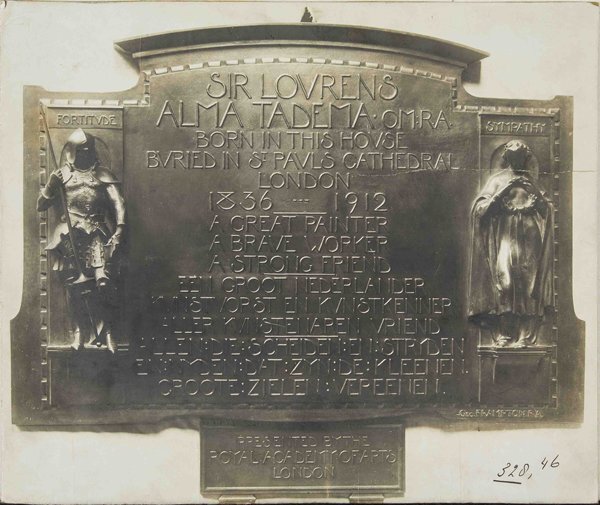 SIR LOVRENS
ALMA TADEMA·OM:RA·
BORN IN THIS HOVSE
BVRIED IN ST PAVLS CATHEDRAL
LONDON
1836 --- 1912
A GREAT PAINTER
A BRAVE WORKER
A STRONG FRIEND
EEN GROOT NEDERLANDER
KVNSTVORST EN KVNSTKENNER
ALLER KVNSTENAREN VRIEND
ALLEN:DIE:SCHEIDEN:EN:STRYDEN
EN:NYDEN:DAT:ZYN:DE:KLEENEN.
GROOTE:ZIELEN:VEREENEN.
FORTITVDE
SYMPATHY
FRAMPTON·R·A·
PRESENTED BY THE
ROYAL ACADEMY OF ARTS
LONDON
328, 46